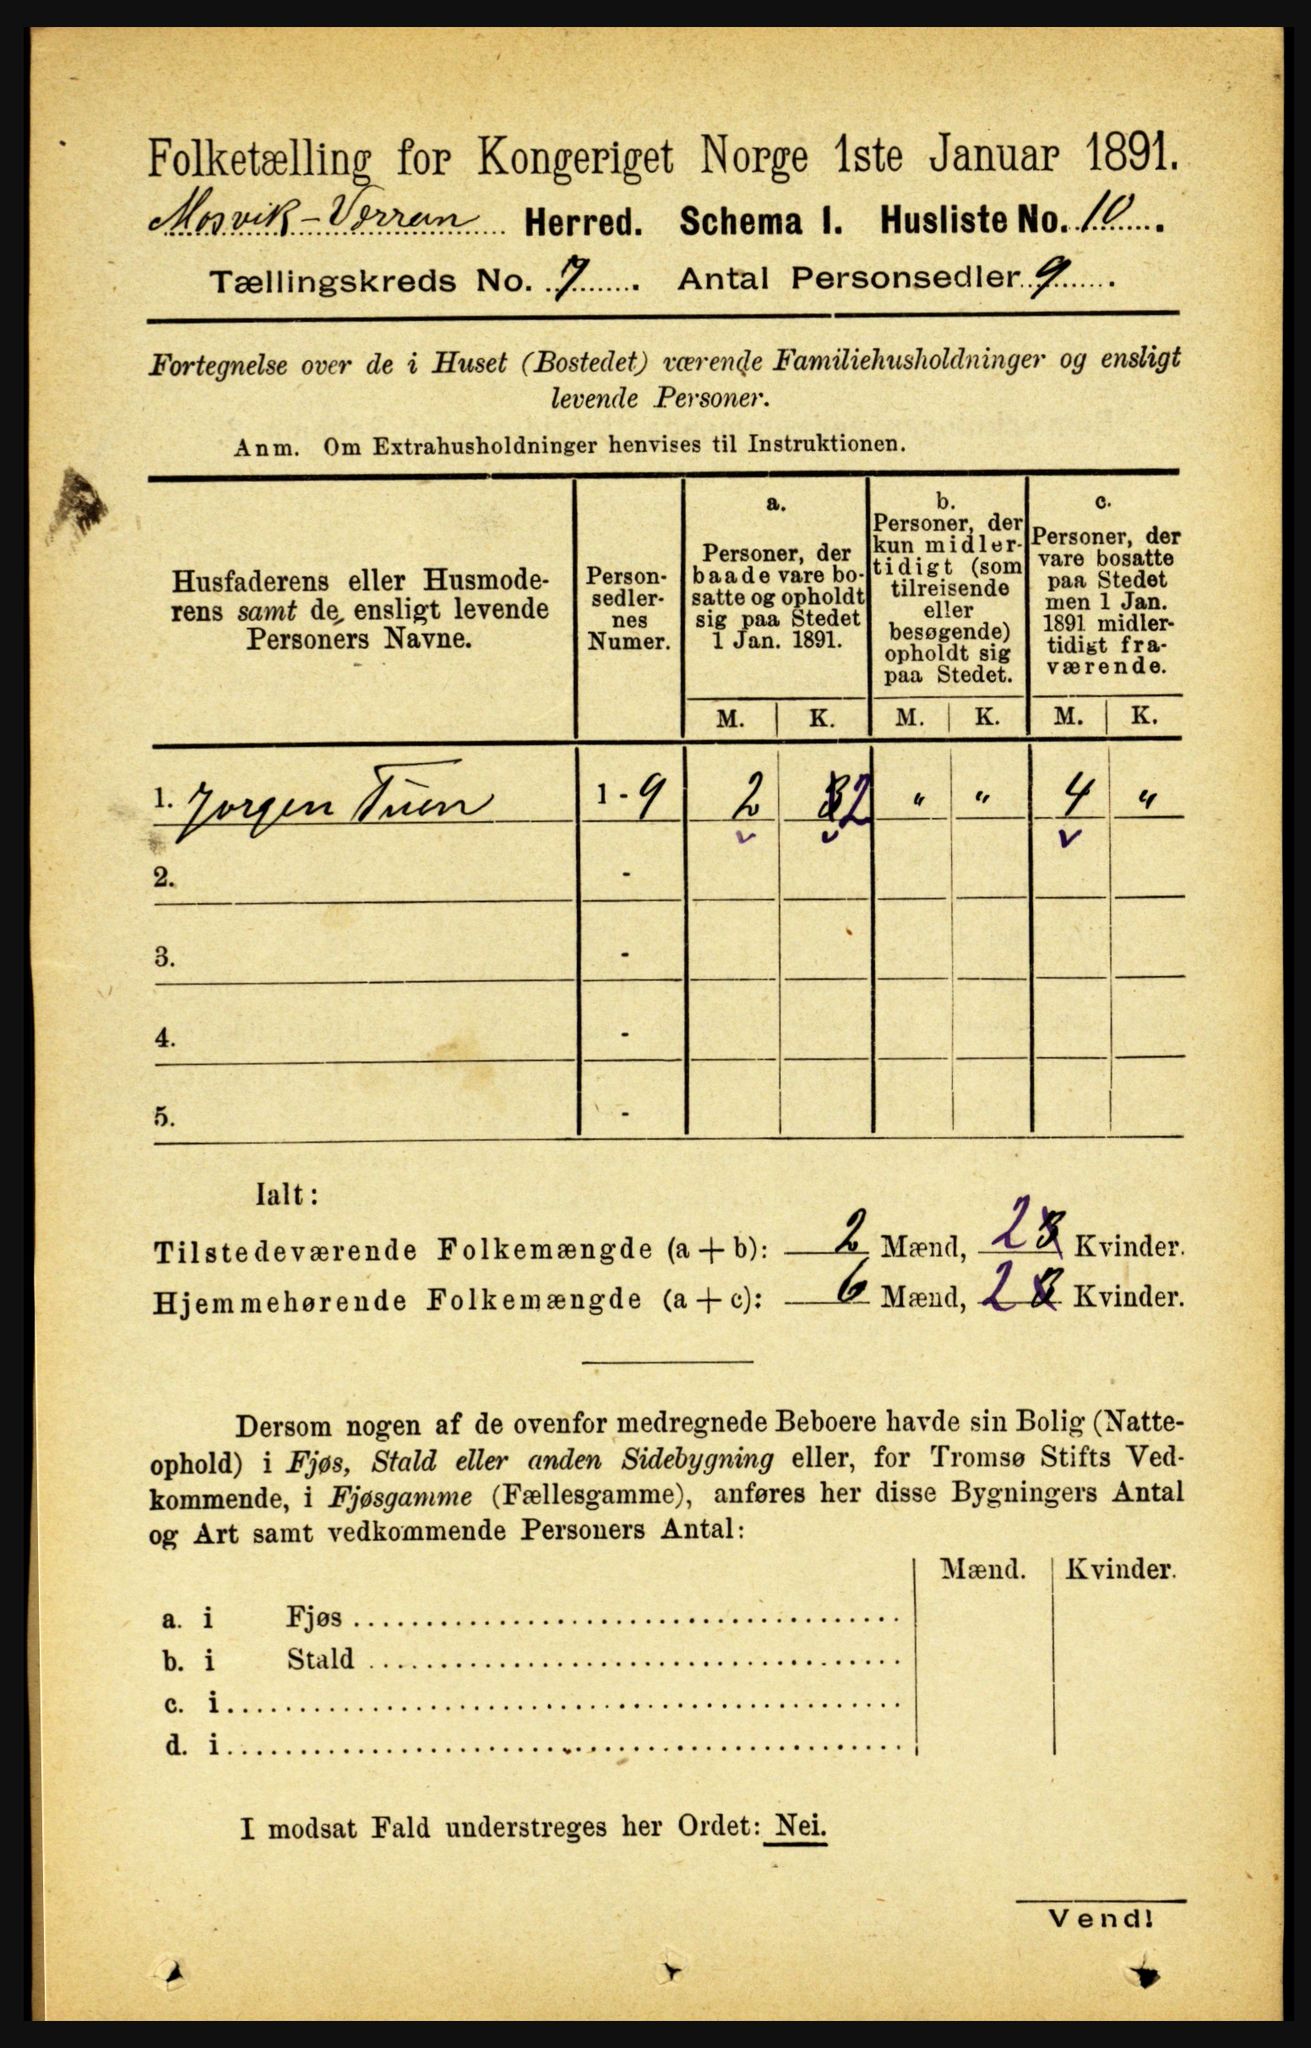 Folketælling for Kongeriget Norge 1ste Januar 1891.
Mosvik-Verran Herred. Schema I. Husliste No. 10.
Tællingskreds No. 7. Antal Personsedler 9.
Fortegnelse over de i Huset (Bostedet) værende Familiehusholdninger og ensligt
levende Personer.
Anm. Om Extrahusholdninger henvises til Instruktionen.
Husfaderens eller Husmode-
rens samt de ensligt levende
Personers Navne.
Person-
sedler-
nes
Numer.
a.
Personer, der
baade vare bo-
satte og opholdt
sig paa Stedet
1 Jan. 1891.
b.
Personer, der
kun midler-
tidigt (som
tilreisende
eller
besøgende)
opholdt sig
paa Stedet.
c.
Personer, der
vare bosatte
paa Stedet
men 1 Jan.
1891 midler-
tidigt fra-
værende.
M. K. M. K. M. K.
1. Jørgen Tuen 1 - 9 2 3 2 " " 4 "
2. -
3. -
4. -
5. -
Ialt:
Tilstedeværende Folkemængde (a + b): 2 Mænd, 2 3 Kvinder.
Hjemmehørende Folkemængde (a + c): 6 Mænd, 2 3 Kvinder.
Dersom nogen af de ovenfor medregnede Beboere havde sin Bolig (Natte-
ophold) i Fjøs, Stald eller anden Sidebygning eller, for Tromsø Stifts Ved-
kommende, i Fjøsgamme (Fællesgamme), anføres her disse Bygningers Antal
og Art samt vedkommende Personers Antal:
Mænd. Kvinder.
a. i Fjøs
b. i Stald
c. i
d. i
I modsat Fald understreges her Ordet: Nei.
Vend!